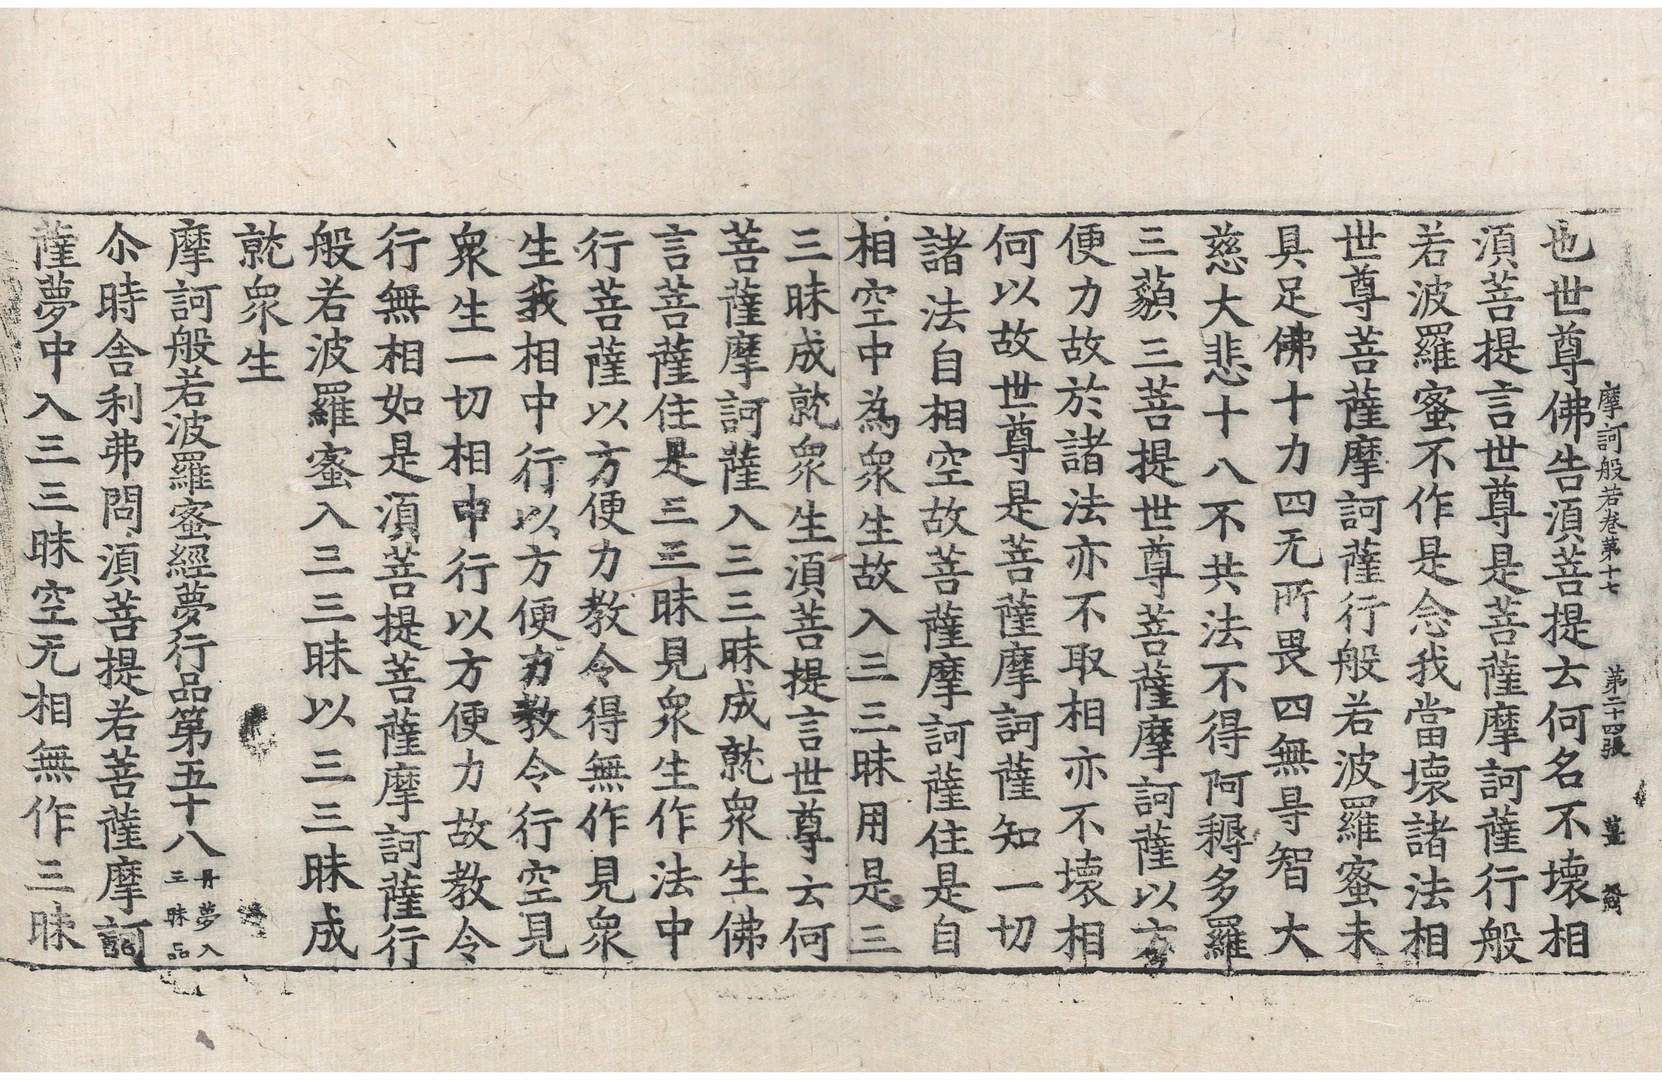 摩訶般若卷第十七 第二十四張 薑
也世尊佛告湏菩提云何名不壞相
湏菩提言世尊是菩薩摩訶薩行般
若波羅蜜不作是念我當壞諸法相
世尊菩薩摩訶薩行般若波羅蜜未
具足佛十力四无所畏四無㝵智大
慈大悲十八不共法不得阿耨多羅
三藐三菩提世尊菩薩摩訶薩以方
便力故於諸法亦不取相亦不壞相
何以故世尊是菩薩摩訶薩知一切
諸法自相空故菩薩摩訶薩住是自
相空中為衆生故入三三昧用是三
三昧成就衆生湏菩提言世尊云何
菩薩摩訶薩入三三昧成就衆生佛
言菩薩住是三三昧見衆生作法中
行菩薩以方便力教令得無作見衆
生我相中行以方便力教令行空見
衆生一切相中行以方便力故教令
行無相如是湏菩提菩薩摩訶薩行
般若波羅蜜入三三昧以三三昧成
就衆生
摩訶般若波羅蜜經夢行品第五十八 丹夢入三昧品
尒時舍利弗問湏菩提若菩薩摩訶
薩夢中入三三昧空无相無作三昧